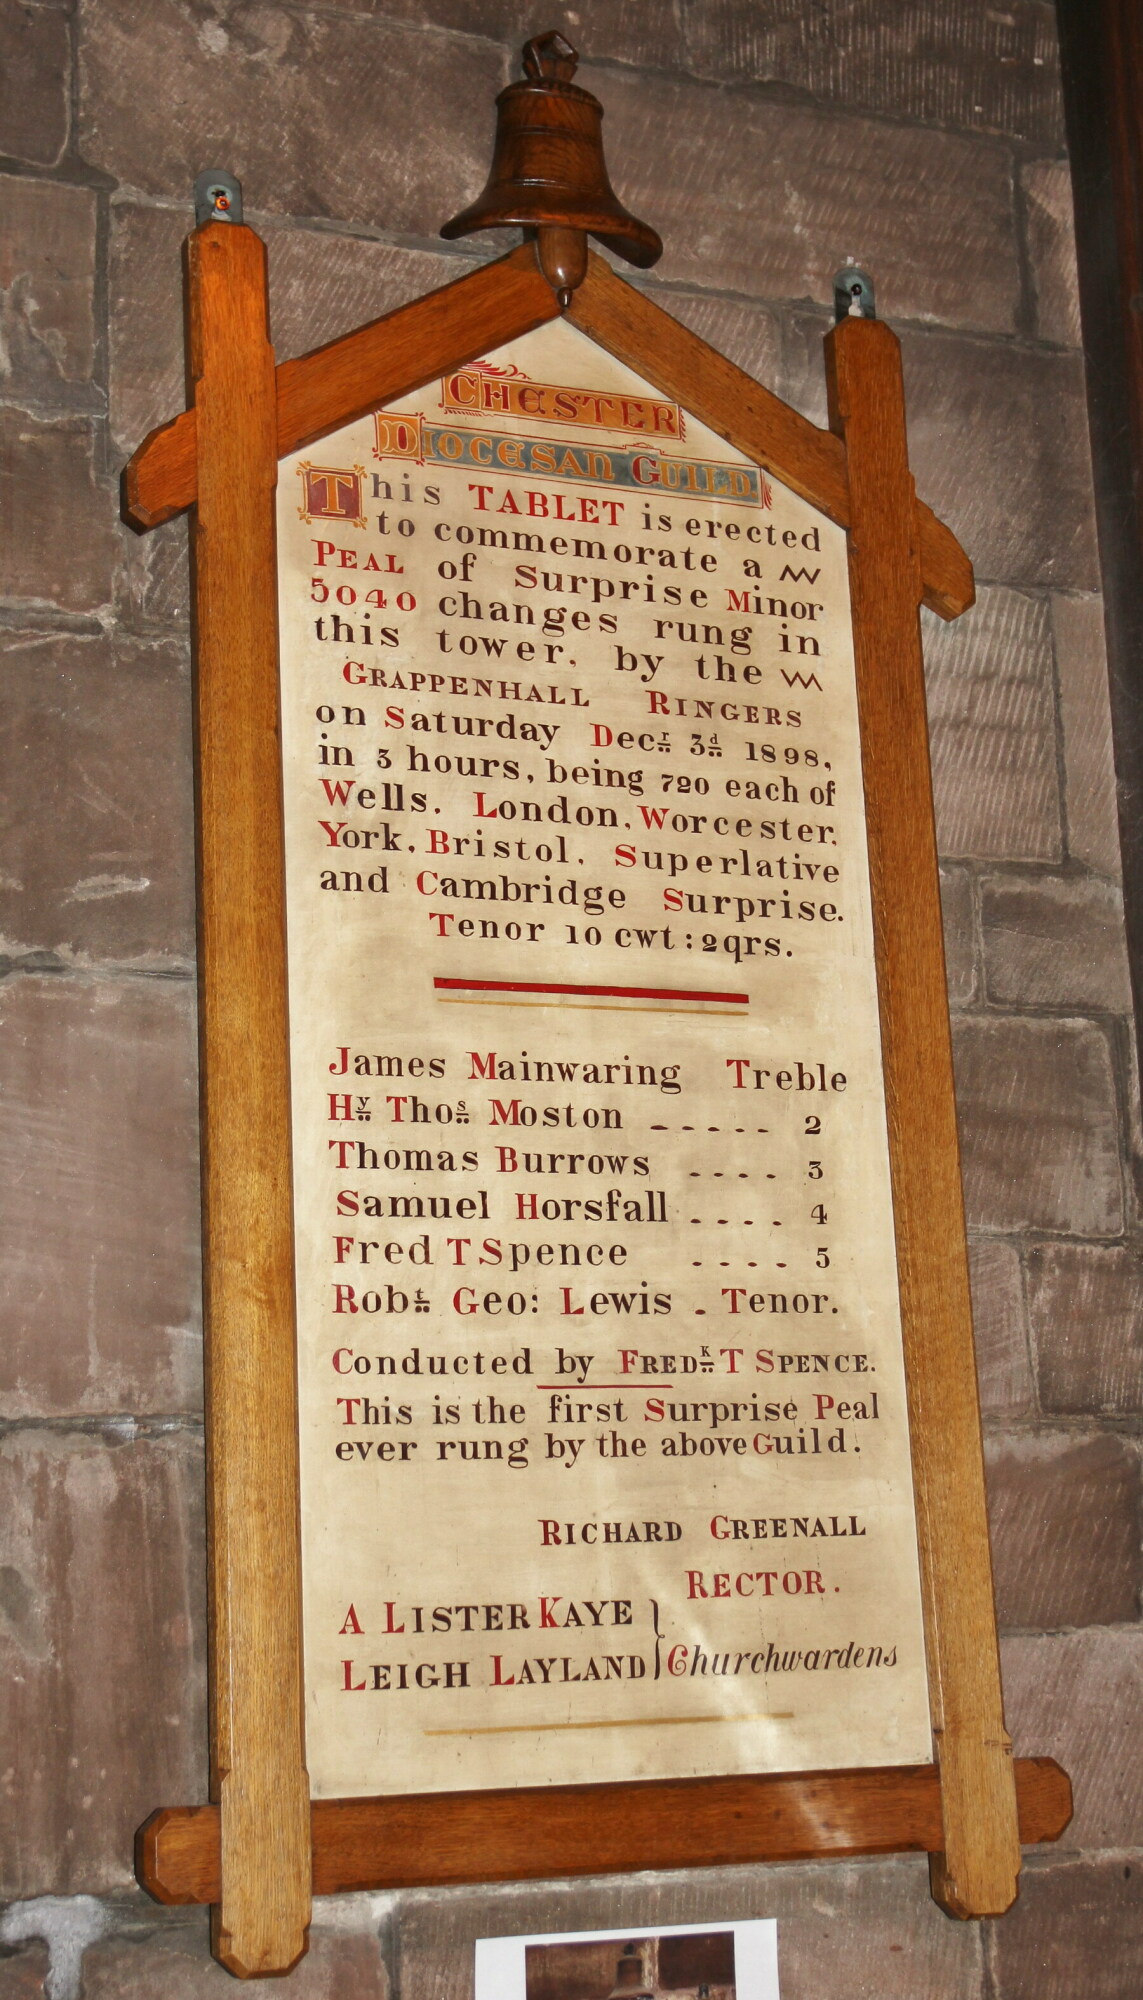 CHESTER
DIOCESAN GUILD.
This TABLET is erected
to commemorate a
PEAL of Surprise Minor
5040 changes rung in
this tower. by the
GRAPPENHALL RINGERS
on Saturday Decr 3d 1898,
in 3 hours, being 720 each of
Wells. London. Worcester.
York. Bristol. Superlative
and Cambridge Surprise.
Tenor 10 cwt : 2 qrs.
James Mainwaring Treble
Hy Thos Moston ----- 2
Thomas Burrows .... 3
Samuel Horsfall .... 4
Fred T Spence .... 5
Robt Geo: Lewis . Tenor.
Conducted by FREDK T SPENCE.
This is the first Surprise Peal
ever rung by the above Guild.
RICHARD GREENALL
RECTOR.
A LISTER KAYE
LEIGH LAYLAND } Churchwardens